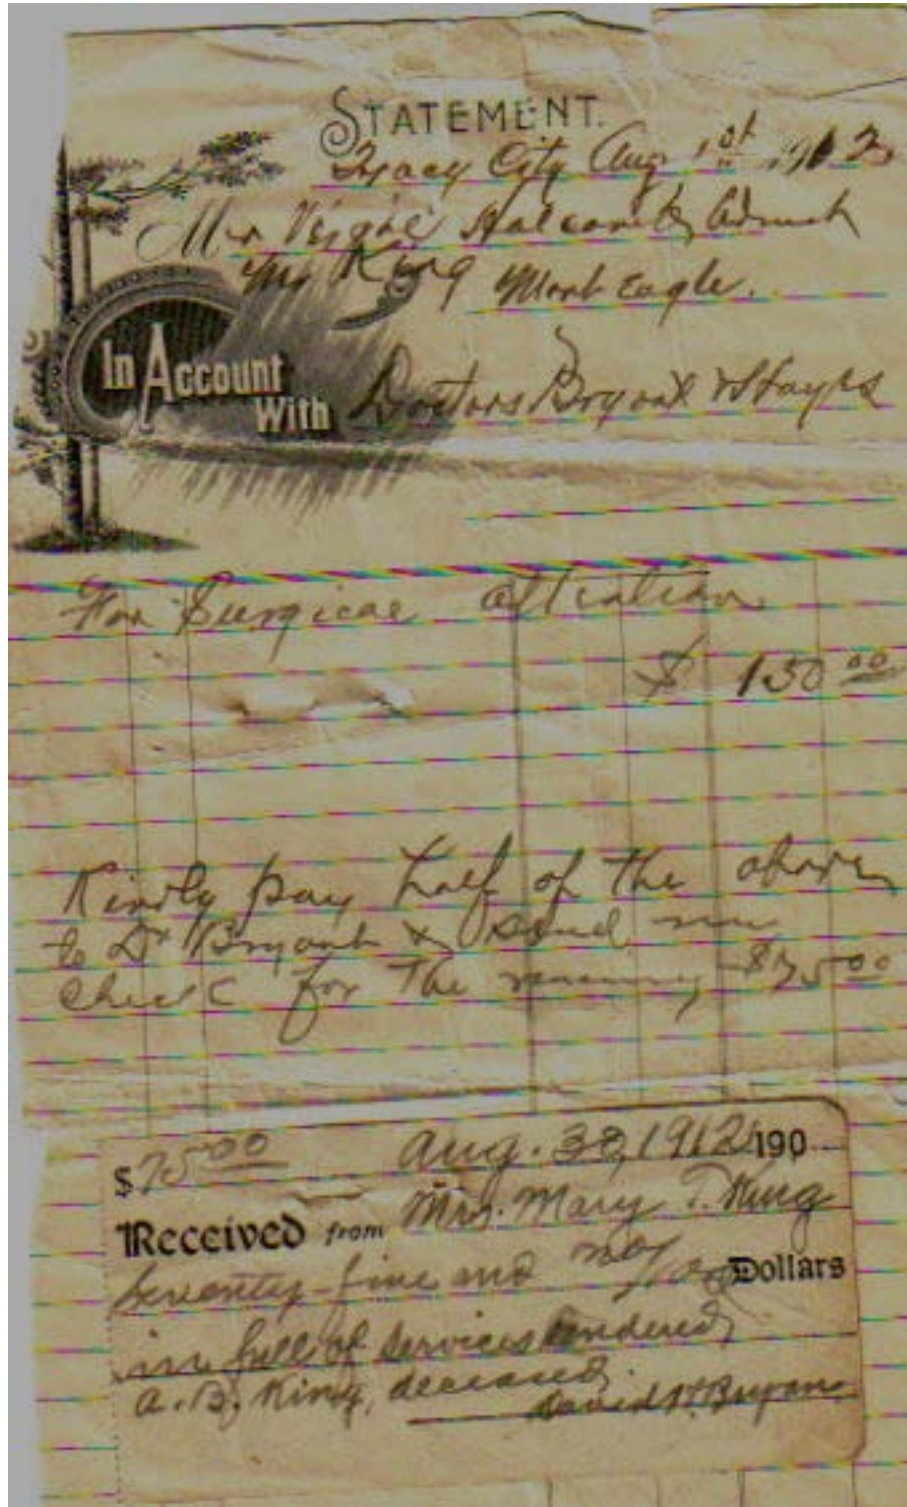 STATEMENT.
Tracy City Aug 1st 1912
Mr Virgil Holcomb, Admnr
Mr King Mont Eagle.
In Account
With Doctors Bryant & Hayes
For Surgical attention
$ 150 00
Kindly pay half of the above
to Dr Bryant & send me
check for the remaining $75 00
$75 00 Aug. 30, 1912 190
Received from Mrs. Mary T. King
Seventy-five and no/100 Dollars
in full of services rendered
A. B. King, deceased
David H. Bryant